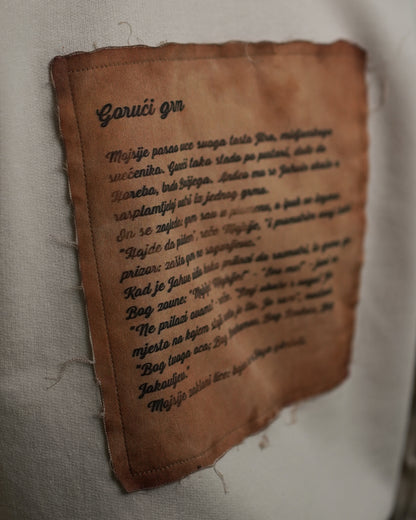 Gorući grm
Mojsije pasao ovce svoga tasta Jitra, midjanskoga
svećenika. Goneći tako stado po pustari, dođe do
Horeba, brda Božjega. Anđeo mu se Jahvin ukaže u
rasplamtjeloj vatri iz jednog grma.
On se zagleda: grm sav u plamenu, a ipak ne izgara.
"Hajde da priđem", reče Mojsije, "i promotrim ovaj
prizor: zašto grm ne sagorijeva."
Kad je Jahve vidio kako prilazi da razmotri, iz grma ga
Bog zovne: "Mojsije! Mojsije!" - "Evo me!" - javi
"Ne prilazi ovamo!" - reče.
mjesto na kojem stojiš sveto je tlo. Ja sam", nastavi
"Bog tvoga oca; Bog Abrahamov, Bog Izakov, Bog
Jakovljev."
Mojsije zakloni lice: bojao se Boga gledati.